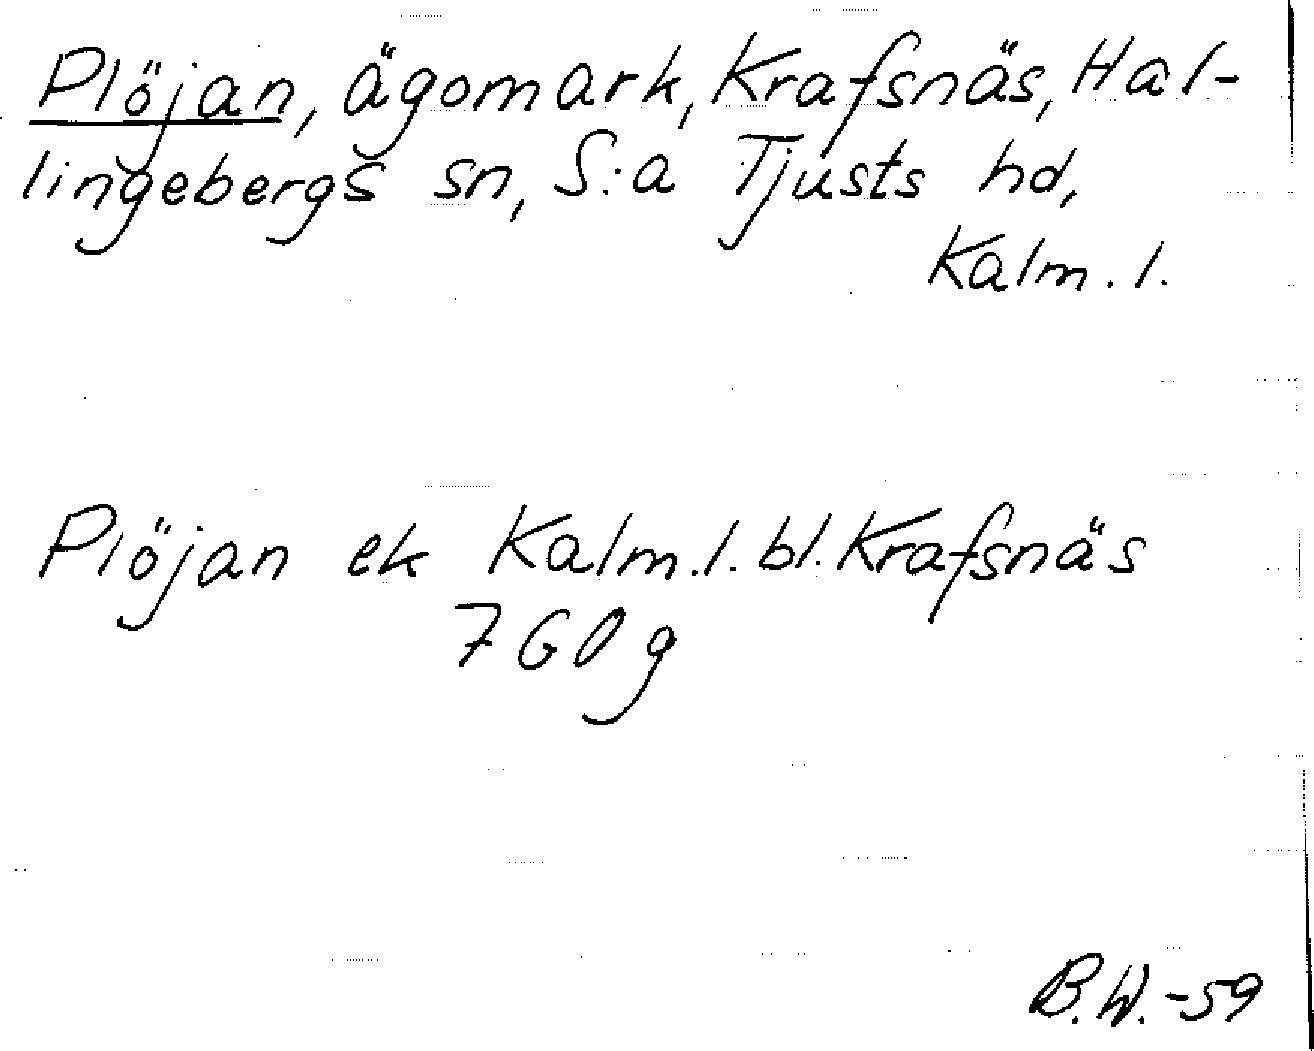 Plöjan, ägomark, Krafsnäs, Hal-
lingebergs sn, S:a Tjusts hd,
Kalm. l.
Plöjan ek Kalm. l. bl. Krafsnäs
7 G 0 g
B.W. -59